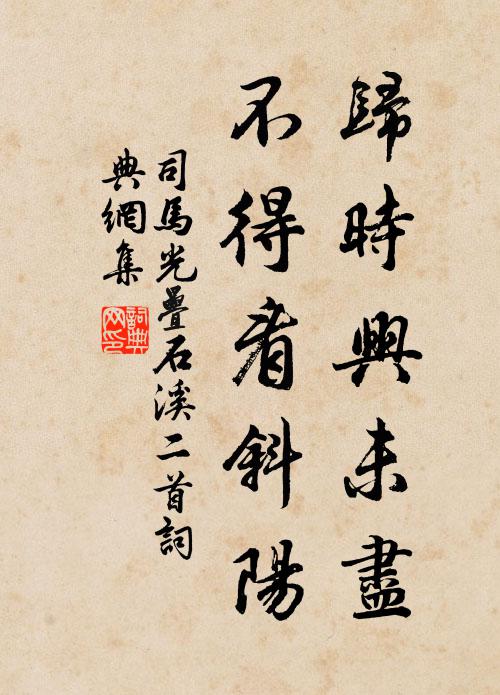 歸時興未盡
不得看斜陽
司馬光疊石溪二首詞
典網集
詞典网印